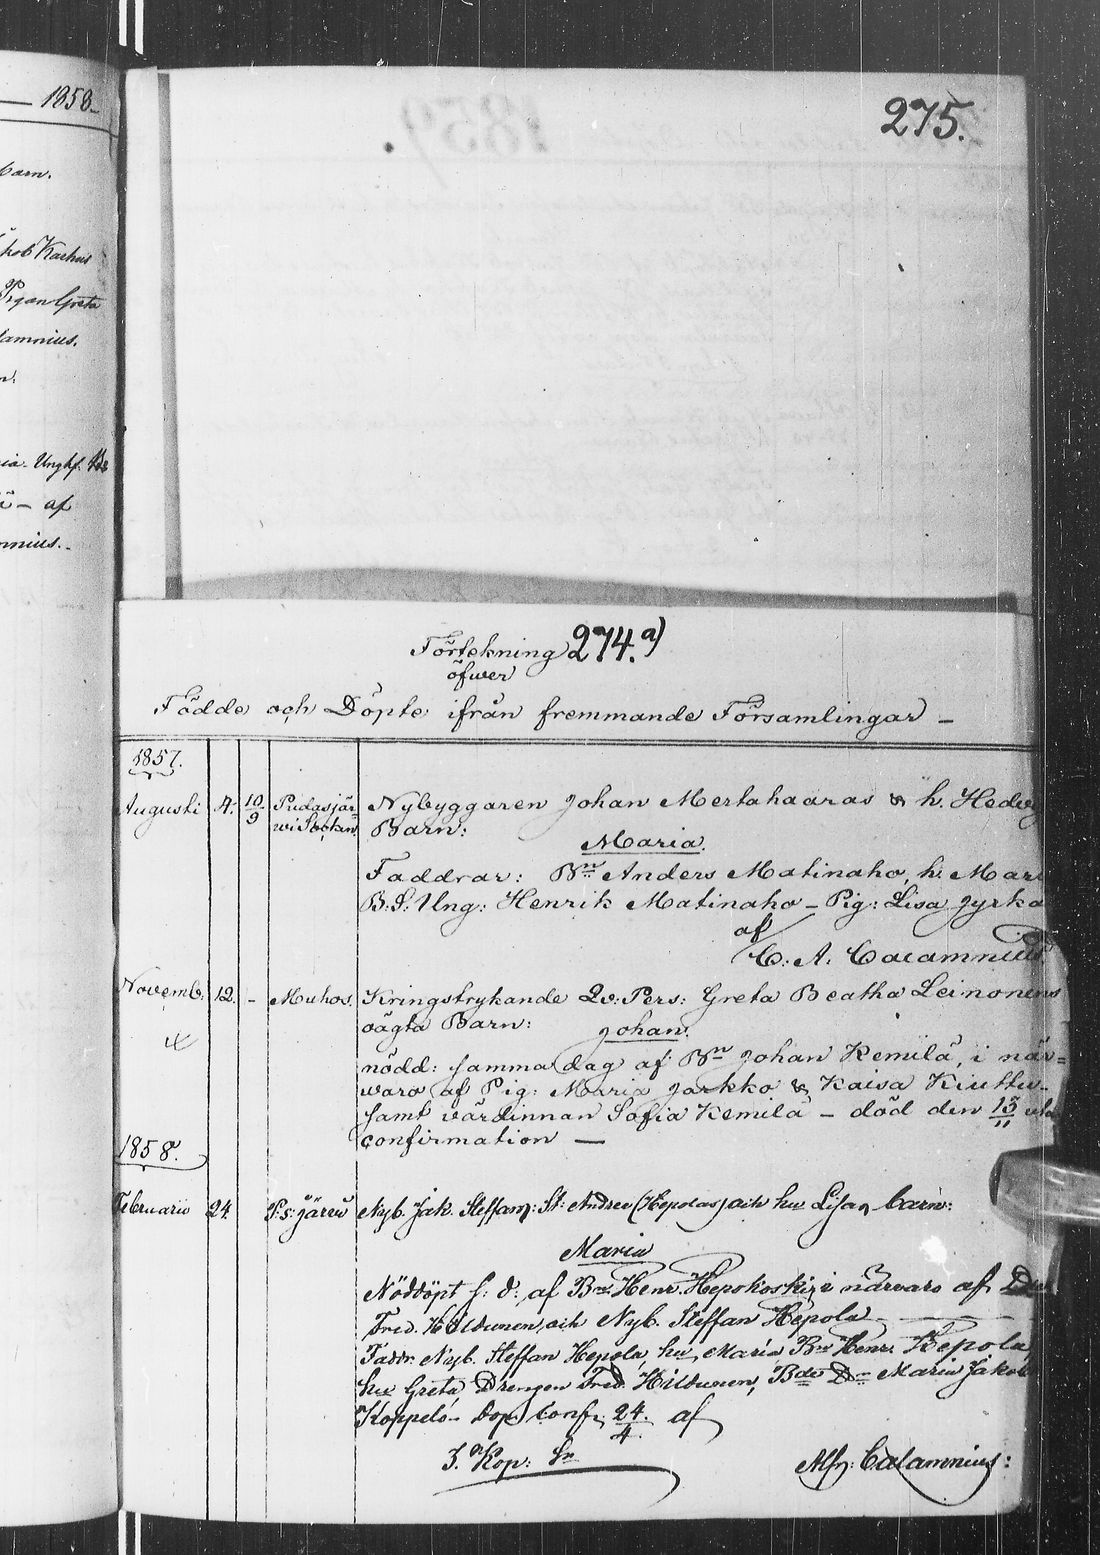 1858
Barn.
Pigan Greta
af
275.
Förtekning 274.a)
öfwer
Födde och Döpte ifrån fremmande Församlingar
1857.
Augusti 4. 10/9 Pudasjär-
wi Socken Nybyggaren Johan Mertahaaras & h. Hedvig
Barn:
Maria.
Faddrar: Bn Anders Matinaho, h. Mari
B.S. Ung: Henrik Matinaho – Pig: Lisa Jyrkä
af
C. A. Calamnius
Novemb: 12. – Muhos. Kringstrykande Qv: Pers: Greta Beatha Leinonens
oägta Barn: Johan.
nödd: samma dag af Bn Johan Kemilä, i när-
waro af Pig: Maria Jarkko & Kaisa Kiuttu
samt värdinnan Sofia Kemilä – död den 13/11 utan
confirmation –
1858.
Februarii 24. P:s:järwi Nyb. Jak. Steffan: St: Andree (Hepolas) och hu Lisas barn:
Maria
Nöddöpt s: d: af Bn Henr. Hepokoski, i närvaro af
Fred. Hildunen, och Nyb. Steffan Hepola
Faddr. Nyb. Steffan Hepola hu Maria Bn Henr. Hepola
hu Greta Drengen Fred. Hildunen, Bde Dn Maria Jakob
Koppelo – Dop. Conf. 24/4. af
J. Kop: Sn Alfr: Calamnius: